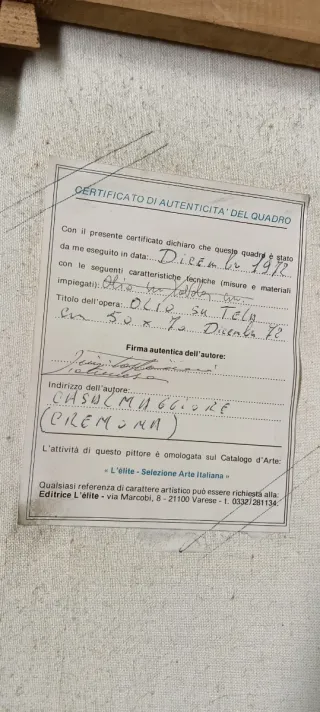 CERTIFICATO DI AUTENTICITA' DEL QUADRO
Con il presente certificato dichiaro che questo quadro è stato
da me eseguito in data: Dicembre 1972
con le seguenti caratteristiche tecniche (misure e materiali
impiegati): Olio
Titolo dell'opera: OLIO SU TELA
cm 50 x 70 Dicembre 72
Firma autentica dell'autore:
Indirizzo dell'autore:
CASALMAGGIORE
(CREMONA)
L'attività di questo pittore è omologata sul Catalogo d'Arte:
« L'élite - Selezione Arte Italiana »
Qualsiasi referenza di carattere artistico può essere richiesta alla:
Editrice L'élite - via Marcobi, 8 - 21100 Varese - t. 0332/281134.